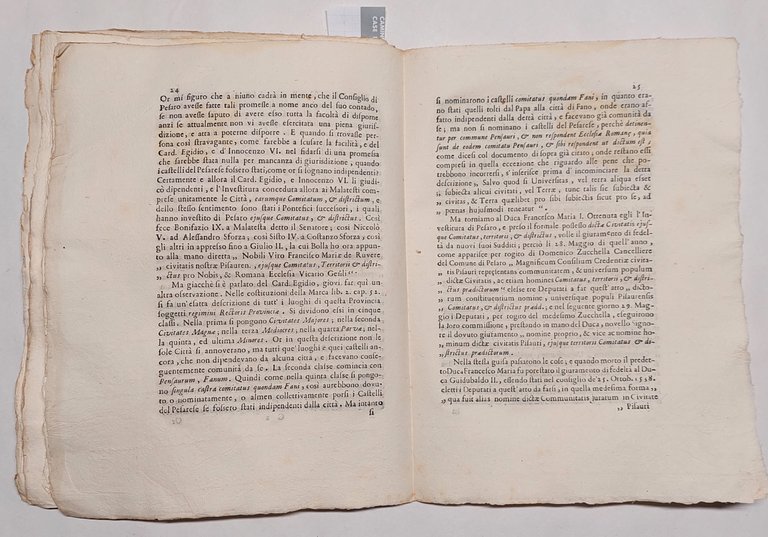 24
Or mi figuro che a niuno cadrà in mente, che il Consiglio di
Pesaro avesse fatte tali promesse a nome anco del suo contado,
se non avesse saputo di avere esso tutta la facoltà di disporne
anzi se attualmente non vi avesse esercitata una piena giuris-
dizione, e atta a poterne disporre. E quando si trovasse per-
sona così stravagante, come farebbe a scusare la facilità, e del
Card. Egidio, e d' Innocenzo VI. nel fidarsi di una promessa
che sarebbe stata nulla per mancanza di giurisdizione, quando
i castelli del Pesarese fossero stati, come or si sognano indipendenti?
Certamente e allora il Card. Egidio, e Innocenzo VI. li giudi-
cò dipendenti, e l'Investitura conceduta allora ai Malatesti com-
prese unitamente le Città, earumque Comitatum, & districtum, e
dello stesso sentimento sono stati i Pontefici successori, i quali
hanno investito di Pesaro ejusque Comitatus, & districtus. Così
fece Bonifazio IX. a Malatesta detto il Senatore; così Niccolò
V. ad Alessandro Sforza; così Sisto IV. a Costanzo Sforza; così
gli altri in appresso fino a Giulio II., la cui Bolla ho ora appun-
to alla mano diretta „ Nobili Viro Francisco Mariæ de Ruvere
„ civitatis nostræ Pisauren., ejusque Comitatus, Territorii & distri-
„ ctus pro Nobis, & Romana Ecclesia Vicario &c.
Ma giacchè si è parlato del Card. Egidio, giovi far quì un
altra osservazione. Nelle costituzioni della Marca lib. 2. cap. 52.
si fa un'esatta descrizione di tutt' i luoghi di questa Provincia
soggetti regimini Rectoris Provinciæ. Si dividono essi in cinque
classi. Nella prima si pongono Civitates Majores; nella seconda
Civitates Magnæ; nella terza Mediocres; nella quarta Parvæ; nel-
la quinta, ed ultima Minores. Or in questa descrizione non le
sole Città si annoverano, ma tutti que' luoghi e quei castelli an-
che, che non dipendevano da alcuna città, e facevano conse-
guentemente comunità da se. La seconda classe comincia con
Pensaurum, Fanum. Quindi come nella quinta classe si pongo-
no singula castra comitatus quondam Fani, così aurebbono dovu-
to o nominatamente, o almen collettivamente porsi i Castelli
del Pesarese se fossero stati indipendenti dalla città. Ma intanto
si
25
si nominarono i castelli comitatus quondam Fani, in quanto era-
no stati quelli tolti dal Papa alla città di Fano, onde erano af-
fatto indipendenti dalla detta città, e facevano comunità da
se; ma non si nominano i castelli del Pesarese, perchè detinen-
tur per commune Pensauri, & non respondent Ecclesiæ Romanæ, quia
sunt de eodem comitatu Pensauri, & sibi respondent ut dictum est,
come dicesi col documento di sopra già citato; onde restano essi
compresi in quella eccezione che riguardo alle pene che po-
trebbono incorrersi, s'inserisce prima d'incominciare la detta
descrizione, Salvo quod si Universitas, vel terra aliqua esset
„ subiecta alicui civitati, vel Terræ, tunc talis sic subiecta &
„ civitas, & Terra quælibet pro sibi subiectis sicut pro se, ad
„ pœnas hujusmodi teneatur “.
Ma torniamo al Duca Francesco Maria I. Ottenuta egli l' In-
vestitura di Pesaro, e preso il formale possesso dictæ Civitatis ejus-
que Comitatus, territorii, & districtus, volle il giuramento di fedel-
tà da nuovi suoi Sudditi, perciò li 28. Maggio di quell' anno,
come apparisce per rogito di Domenico Zucchella Cancelliere
del Comune di Pesaro „ Magnificum Consilium Credentiæ civita-
„ tis Pisauri repræsentans communitatem, & universum populum
„ dictæ Civitatis, ac etiam homines Comitatus, territorii, & distri-
„ ctus prædictorum “ elesse tre Deputati a far quest' atto „ dicto-
„ rum constituentium nomine, universique populi Pisaurensis
„ Comitatus, & districtus prædict., e nel seguente giorno 29. Mag-
gio i Deputati, per rogito del medesimo Zucchella, eseguirono
la loro commissione, prestando in mano del Duca, novello Signo-
re il dovuto giuramento „ nomine proprio, & vice ac nomine ho-
„ minum dictæ civitatis Pisauri, ejusque territorii Comitatus & di-
„ strictus prædictorum.
Nella stessa guisa passarono le cose, quando morto il predet-
to Duca Francesco Maria fu prestato il giuramento di fedeltà al Du-
ca Guidubaldo II., essendo stati nel consiglio de' 25. Ottob. 1538.
eletti i Deputati a quest'atto da farsi, in quella medesima forma „
„ qua fuit alias nomine dictæ Communitatis juratum in Civitate
„ Pisauri